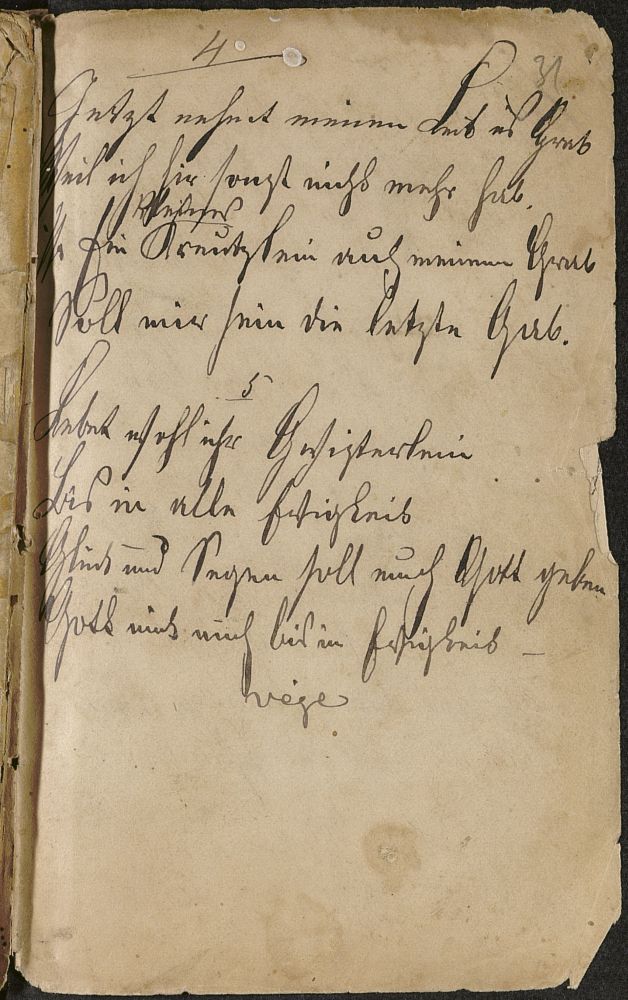 4.
31
Jetzt nehmt meinen Leib ins Grab
Weil ich hir sonst nichts mehr hab.
kleines
Ein Kreutzlein auf meinem Grab
Soll mir sein die letzte Gab.
5
Lebet wohl ihr Gschwisterlein
Bis in alle Ewigkeit
Glück und Segen soll euch Gott geben
Gott mit euch bis in Ewigkeit –
vége